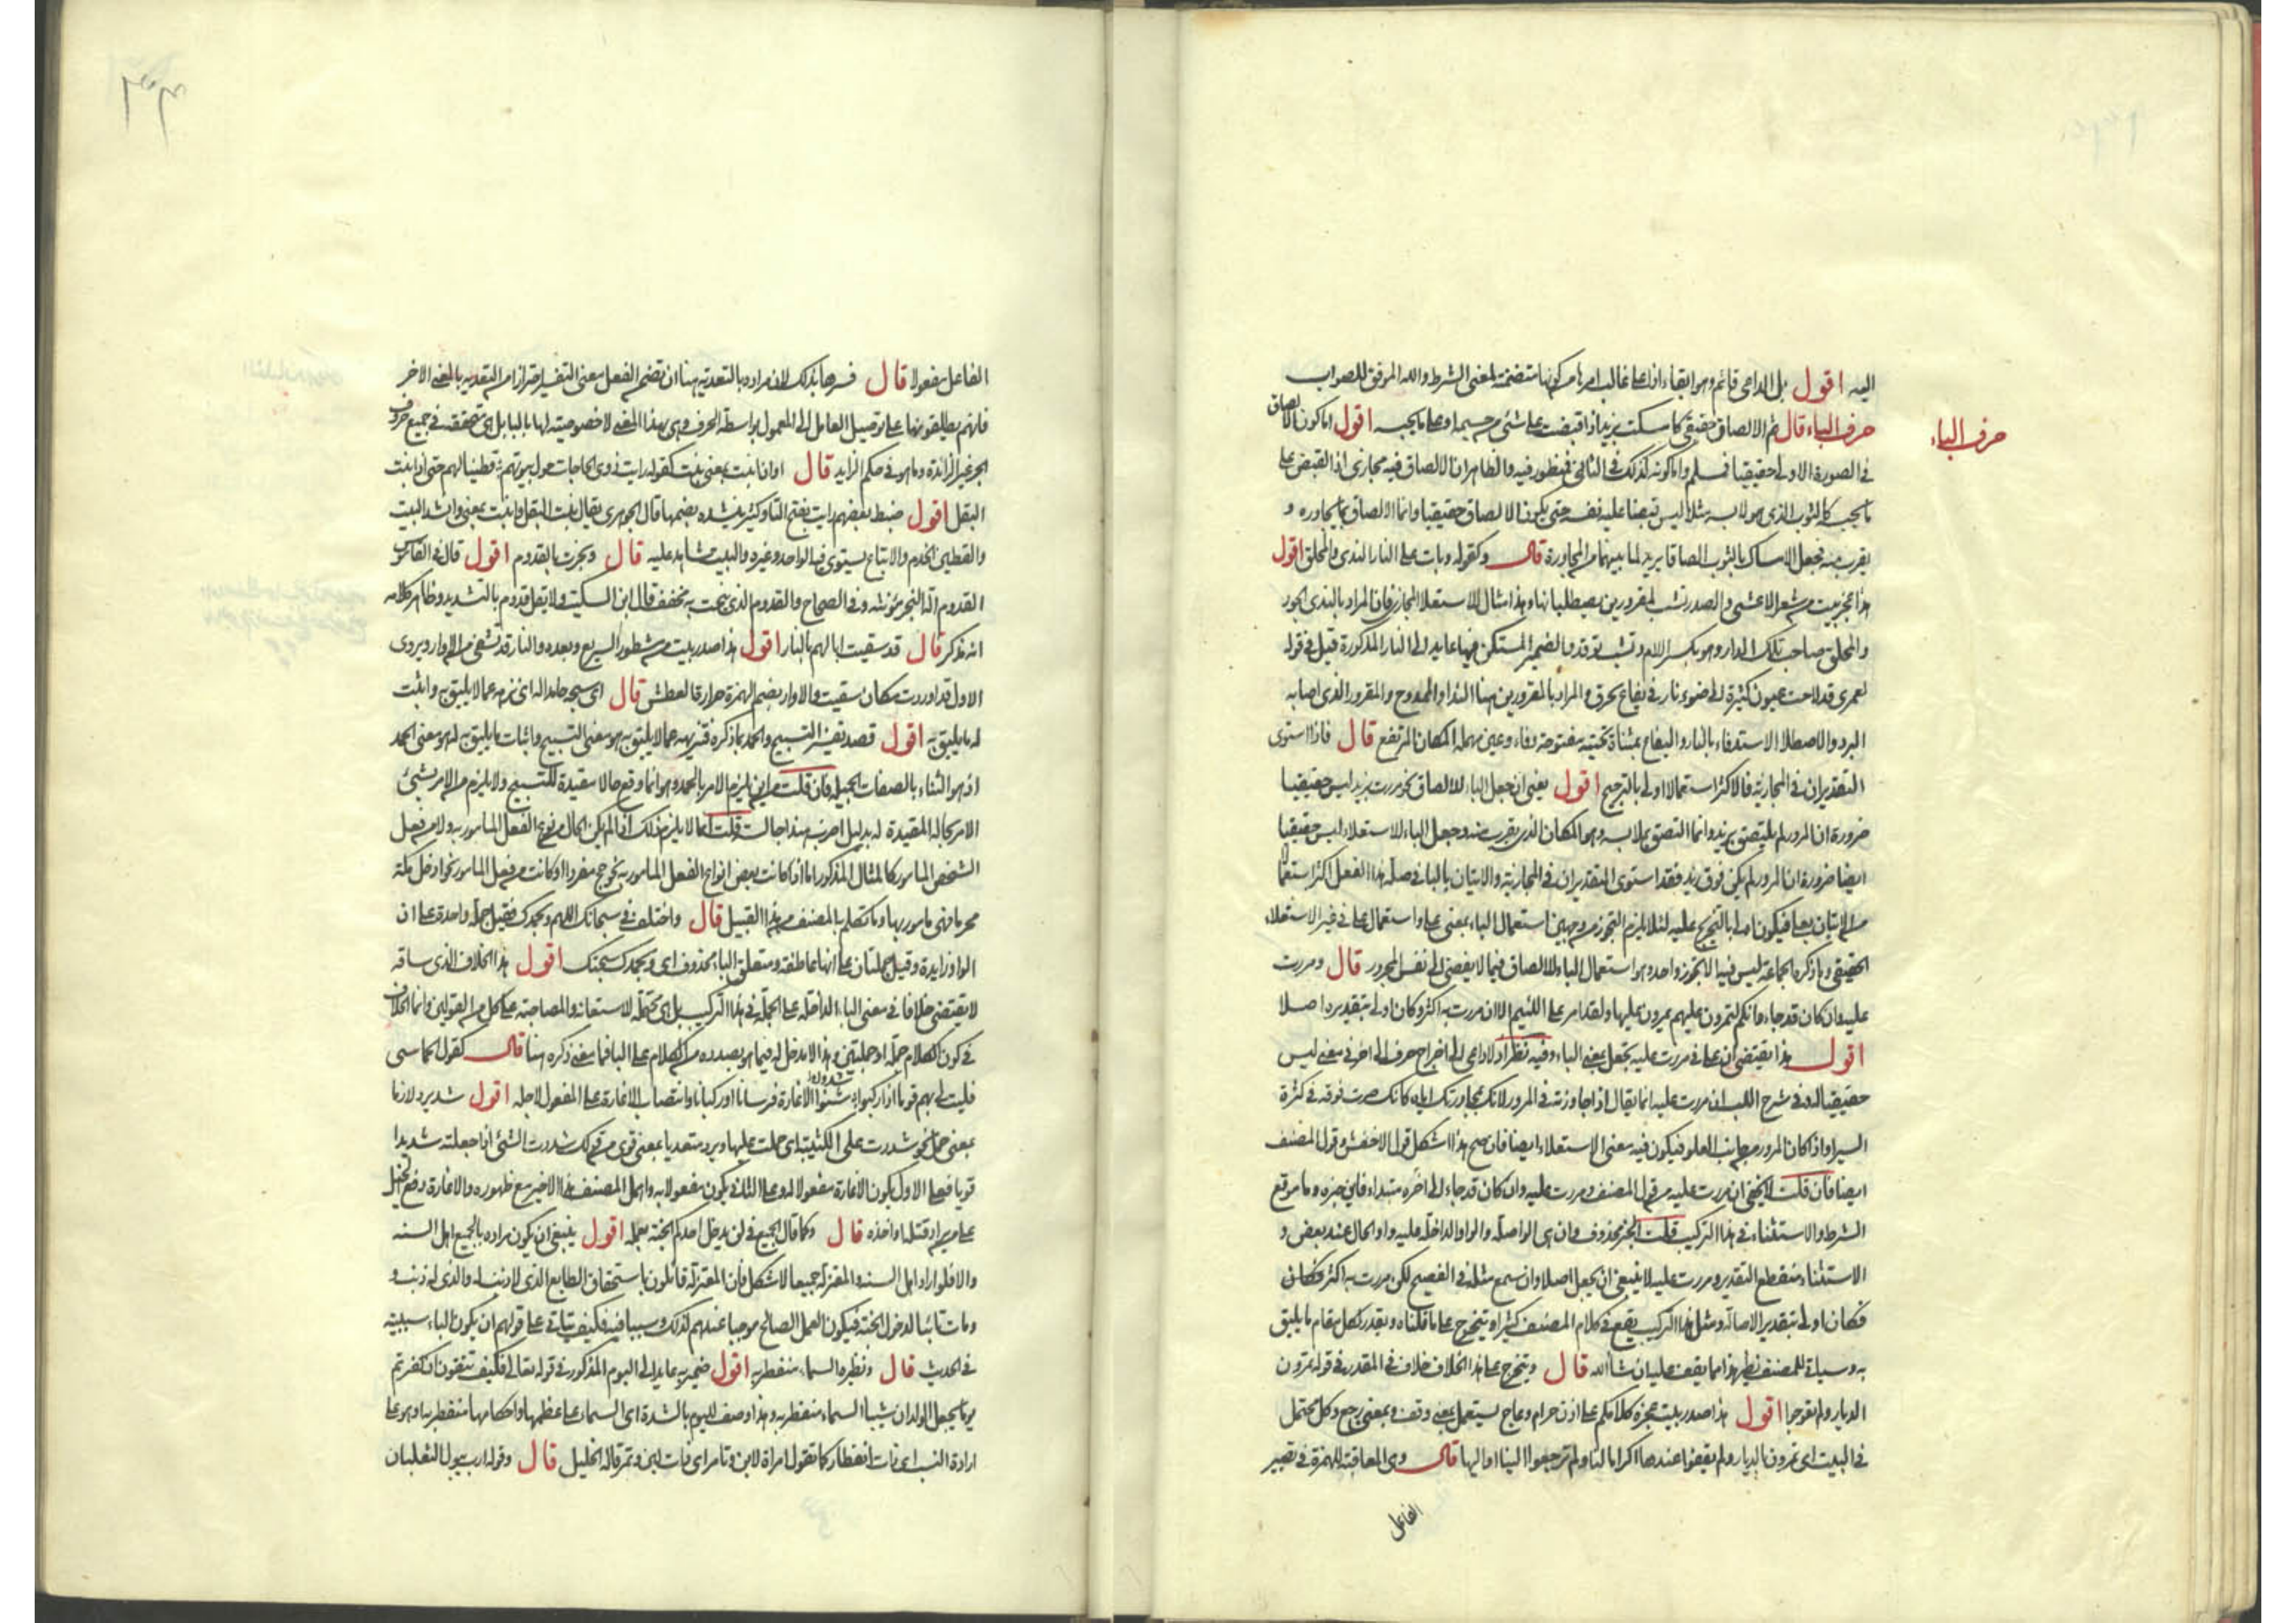 اليه اقول بل الداعى قائم وهو ابقاء اذا على غالب امرها من كونها متضمنة لمعنى الشرط والله الموفق للصواب
حرف الباء
حرف الباء قال ثم الالصاق حقيقى كامسكت بزيد اذا قبضت على شئ من جسمه او على ما يحبسه اقول اما كون الالصاق
فى الصورة الاولى حقيقيا فمسلم واما كونه كذلك فى الثانى فمنظور فيه والظاهر ان الالصاق فيه مجازى اذ القبض على
ما يحبسه كالثوب الذى هو لابسه مثلا ليس قبضا عليه نفسه حتى يكون الالصاق حقيقيا وانما الالصاق بما يجاوره و
يقرب منه فجعل الامساك بالثوب الصاقا بزيد لما بينهما من المجاورة قال وكقوله وبات على النار الندى والمحلق اقول
هذا عجز بيت من شعر الاعشى والصدر تشب لمقرورين يصطليانها وهذا مثال للاستعلاء المجازى فان المراد بالندى الجود
والمحلق صاحب تلك الدار وهو بكسر اللام وتشب توقد والضمير المستكن فيها عايد الى النار المذكورة قبل فى قوله
لعمرى قد لاحت عيون كثيرة الى ضوء نار فى يفاع تحرق والمراد بالمقرورين هنا الندا والممدوح والمقرور الذى اصابه
البرد والاصطلاء الاستدفاء بالنار واليفاع بمثناة تحتية مفتوحة وفاء وعين مهملة المكان المرتفع قال فاذا استوى
التقديران فى المجازية فالاكثر استعمالا اولى بالترجيح اقول يعنى ان جعل الباء للالصاق نحو مررت بزيد ليس حقيقيا
ضرورة ان المرور لم يلتصق بزيد وانما التصق بملابسه وهو المكان الذى يقرب منه وجعل الباء للاستعلاء ليس حقيقيا
ايضا ضرورة ان المرور لم يكن فوق زيد فقد استوى التقديران فى المجازية والاتيان بالباء فى صلة هذا الفعل اكثر استعمالا
من الاتيان بعلى فيكون اولى بالتخريج عليه لئلا يلزم التجوز من وجهين استعمال الباء بمعنى على واستعمال على فى غير الاستعلاء
الحقيقى وما ذكره الجماعة ليس فيه الا تجوز واحد وهو استعمال الباء للالصاق فيما لا يفضى الى نفس المجرور قال ومررت
عليه وان كان قد جاء وانكم لتمرون عليهم يمرون عليها ولقد امر على اللئيم الا ان مررت به اكثر وكان اولى بتقديره اصلا
اقول هذا يقتضى ان على فى مررت عليه يجعل بمعنى الباء وفيه نظر اذ لا داعى الى اخراج حرف الى اخر فى معنى ليس
حقيقيا له وفى شرح اللب ان مررت عليه انما يقال اذا جاوزته فى المرور لانك بمجاورتك اياه كانك صرت فوقه فى كثرة
السير او اذا كان المرور من جانب العلو فيكون فيه معنى الاستعلاء ايضا فان صح هذا اشكل قول الاخفش وقول المصنف
ايضا فان قلت لا يخفى ان مررت عليه من قول المصنف ومررت عليه وان كان قد جاء الى اخره مبتداء فاين خبره وما موقع
الشرط والاستثناء فى هذا التركيب قلت الخبر محذوف وان هى الواصلة والواو الداخلة عليه واو الحال عند بعض و
الاستثناء منقطع التقدير ومررت عليه لا ينبغى ان يجعل اصلا وان سمع مثله فى الفصيح لكن مررت به اكثر فكان
فكان اولى بتقدير الاصالة ومثل هذا التركيب يقع فى كلام المصنف كثيرا ويتخرج على ما قلناه ويقدر كل مقام ما يليق
به وسياتى للمصنف نظير هذا مما يقف عليه ان شا الله قال ويتخرج على هذا الخلاف خلاف فى المقدر فى قوله تمرون
الديار ولم تعوجوا اقول هذا صدر بيت عجزه كلامكم على اذن حرام وعاج يستعمل بمعنى وقف وبمعنى رجع وكل محتمل
فى البيت اى تمرون بالديار ولم تقفوا عندها اكراما لنا ولم ترجعوا الينا او اليها قال وهى المعاقبة للهمزة فى تصيير
الفاعل
الفاعل مفعولا قال فسرها بذلك لان مراده بالتعدية هنا ان يضم الفعل معنى التصيير احترازا من التعدية بالمعنى الاخر
فانهم يطلقونها على توصيل العامل الى المعمول بواسطة الحرف وهى بهذا المعنى لا خصوصية لها بالباء بل هى متحققة فى جميع حروف
الجر غير الزائدة وما هو فى حكم الزايد قال او ان انبت بمعنى نبت كقوله رايت ذوى الحاجات حول بيوتهم قطينا لهم حتى اذا انبت
البقل اقول ضبط بعضهم رايت بفتح التا وكثير ينشده بضمها قال الجوهرى يقال نبت البقل وانبت بمعنى وانشد البيت
والقطين الخدم والاتباع يستوى فيه الواحد وغيره والبيت شاهد عليه قال ونجرت بالقدوم اقول قال فى القاموس
القدوم الة النجر مؤنثة وفى الصحاح والقدوم الذى ينحت به مخفف قال ابن السكيت ولا يقل قدوم بالتشديد وظاهر كلامه
انه مذكر قال قد سقيت ابالهم بالنار اقول هذا صدر بيت من مشطور السريع وبعده والنار قد تشفى من الاوار ويروى
الاول قد اوردت مكان سقيت والاوار بضم الهمزة حرارة العطش قال اى سبح حامدا له اى نزهه عما لا يليق به واثبت
له ما يليق به اقول قصد تفسير التسبيح والحمد بما ذكره فتنزيهه عما لا يليق به هو معنى التسبيح واثبات ما يليق به له هو معنى الحمد
اذ هو الثناء بالصفات الجميلة فان قلت من اين يلزم الامر بالحمد وهو انما وقع حالا مقيدة للتسبيح ولا يلزم من الامر بشئ
الامر بحاله المقيدة له بدليل اضرب هندا جالسة قلت انما لا يلزم ذلك اذا لم يكن الحال من نوع الفعل المامور به ولا من فعل
الشخص المامور كالمثال المذكور اما اذا كانت بعض انواع الفعل المامور به نحو حج مفردا او كانت من فعل المامور نحو ادخل مكة
محرما فهى مامور بها وما تكلم به المصنف من هذا القبيل قال واختلف فى سبحانك اللهم وبحمدك فقيل جملة واحدة على ان
الواو زايدة وقيل جملتان على انها عاطفة ومتعلق الباء محذوف اى وبحمدك سبحتك اقول هذا الخلاف الذى ساقه
لا يقتضى خلافا فى معنى الباء الداخلة على الجملة فى هذا التركيب بل هى محتملة للاستعانة والمصاحبة على كل من القولين وانما الخلاف
فى كون الكلام جملة او جملتين وهذا لا مدخل له فيما هو بصدده من الكلام على الباء فما معنى ذكره هنا قال كقول الحماسى
فليت لى بهم قوما اذا ركبوا شنوا الاغارة فرسانا وركبانا وانتصاب الاغارة على المفعول لاجله اقول شد يرد لازما
بمعنى حمل نحو شددت على الكتيبة اى حملت عليها ويرد متعديا بمعنى قوى من قولك شددت الشئ اذا جعلته شديدا
قويا فعلى الاول يكون الاغارة مفعولا له وعلى الثانى يكون مفعولا به واهمل المصنف هذا الاخير مع ظهوره والاغارة دفع الخيل
على من يراد قتله او اخذه قال وكما قال الجميع فى لن يدخل احدكم الجنة بعمله اقول ينبغى ان يكون مراده بالجميع اهل السنه
والا فلو اراد اهل السنة والمعتزلة جميعا لاشكل فان المعتزلة قائلون باستحقاق الطايع الذى لا ذنب له والذى له ذنب و
ومات تائبا لدخول الجنة فيكون العمل الصالح موجبا عندهم لذلك وسببا فيه فكيف يتاتى على قولهم ان يكون الباء سببية
فى الحديث قال ونظيره السماء منفطر به اقول ضمير به عايد الى اليوم المذكور فى قوله تعالى فكيف تتقون ان كفرتم
يوما يجعل الولدان شيبا السماء منفطر به وهذا وصف لليوم بالشدة اى السماء على عظمها واحكامها منفطر به وهو على
ارادة النسب اى ذات انفطار كما تقول امراة لابن وتامر اى ذات لبن وتمر قاله الخليل قال وقوله ارب يبول الثعلبان